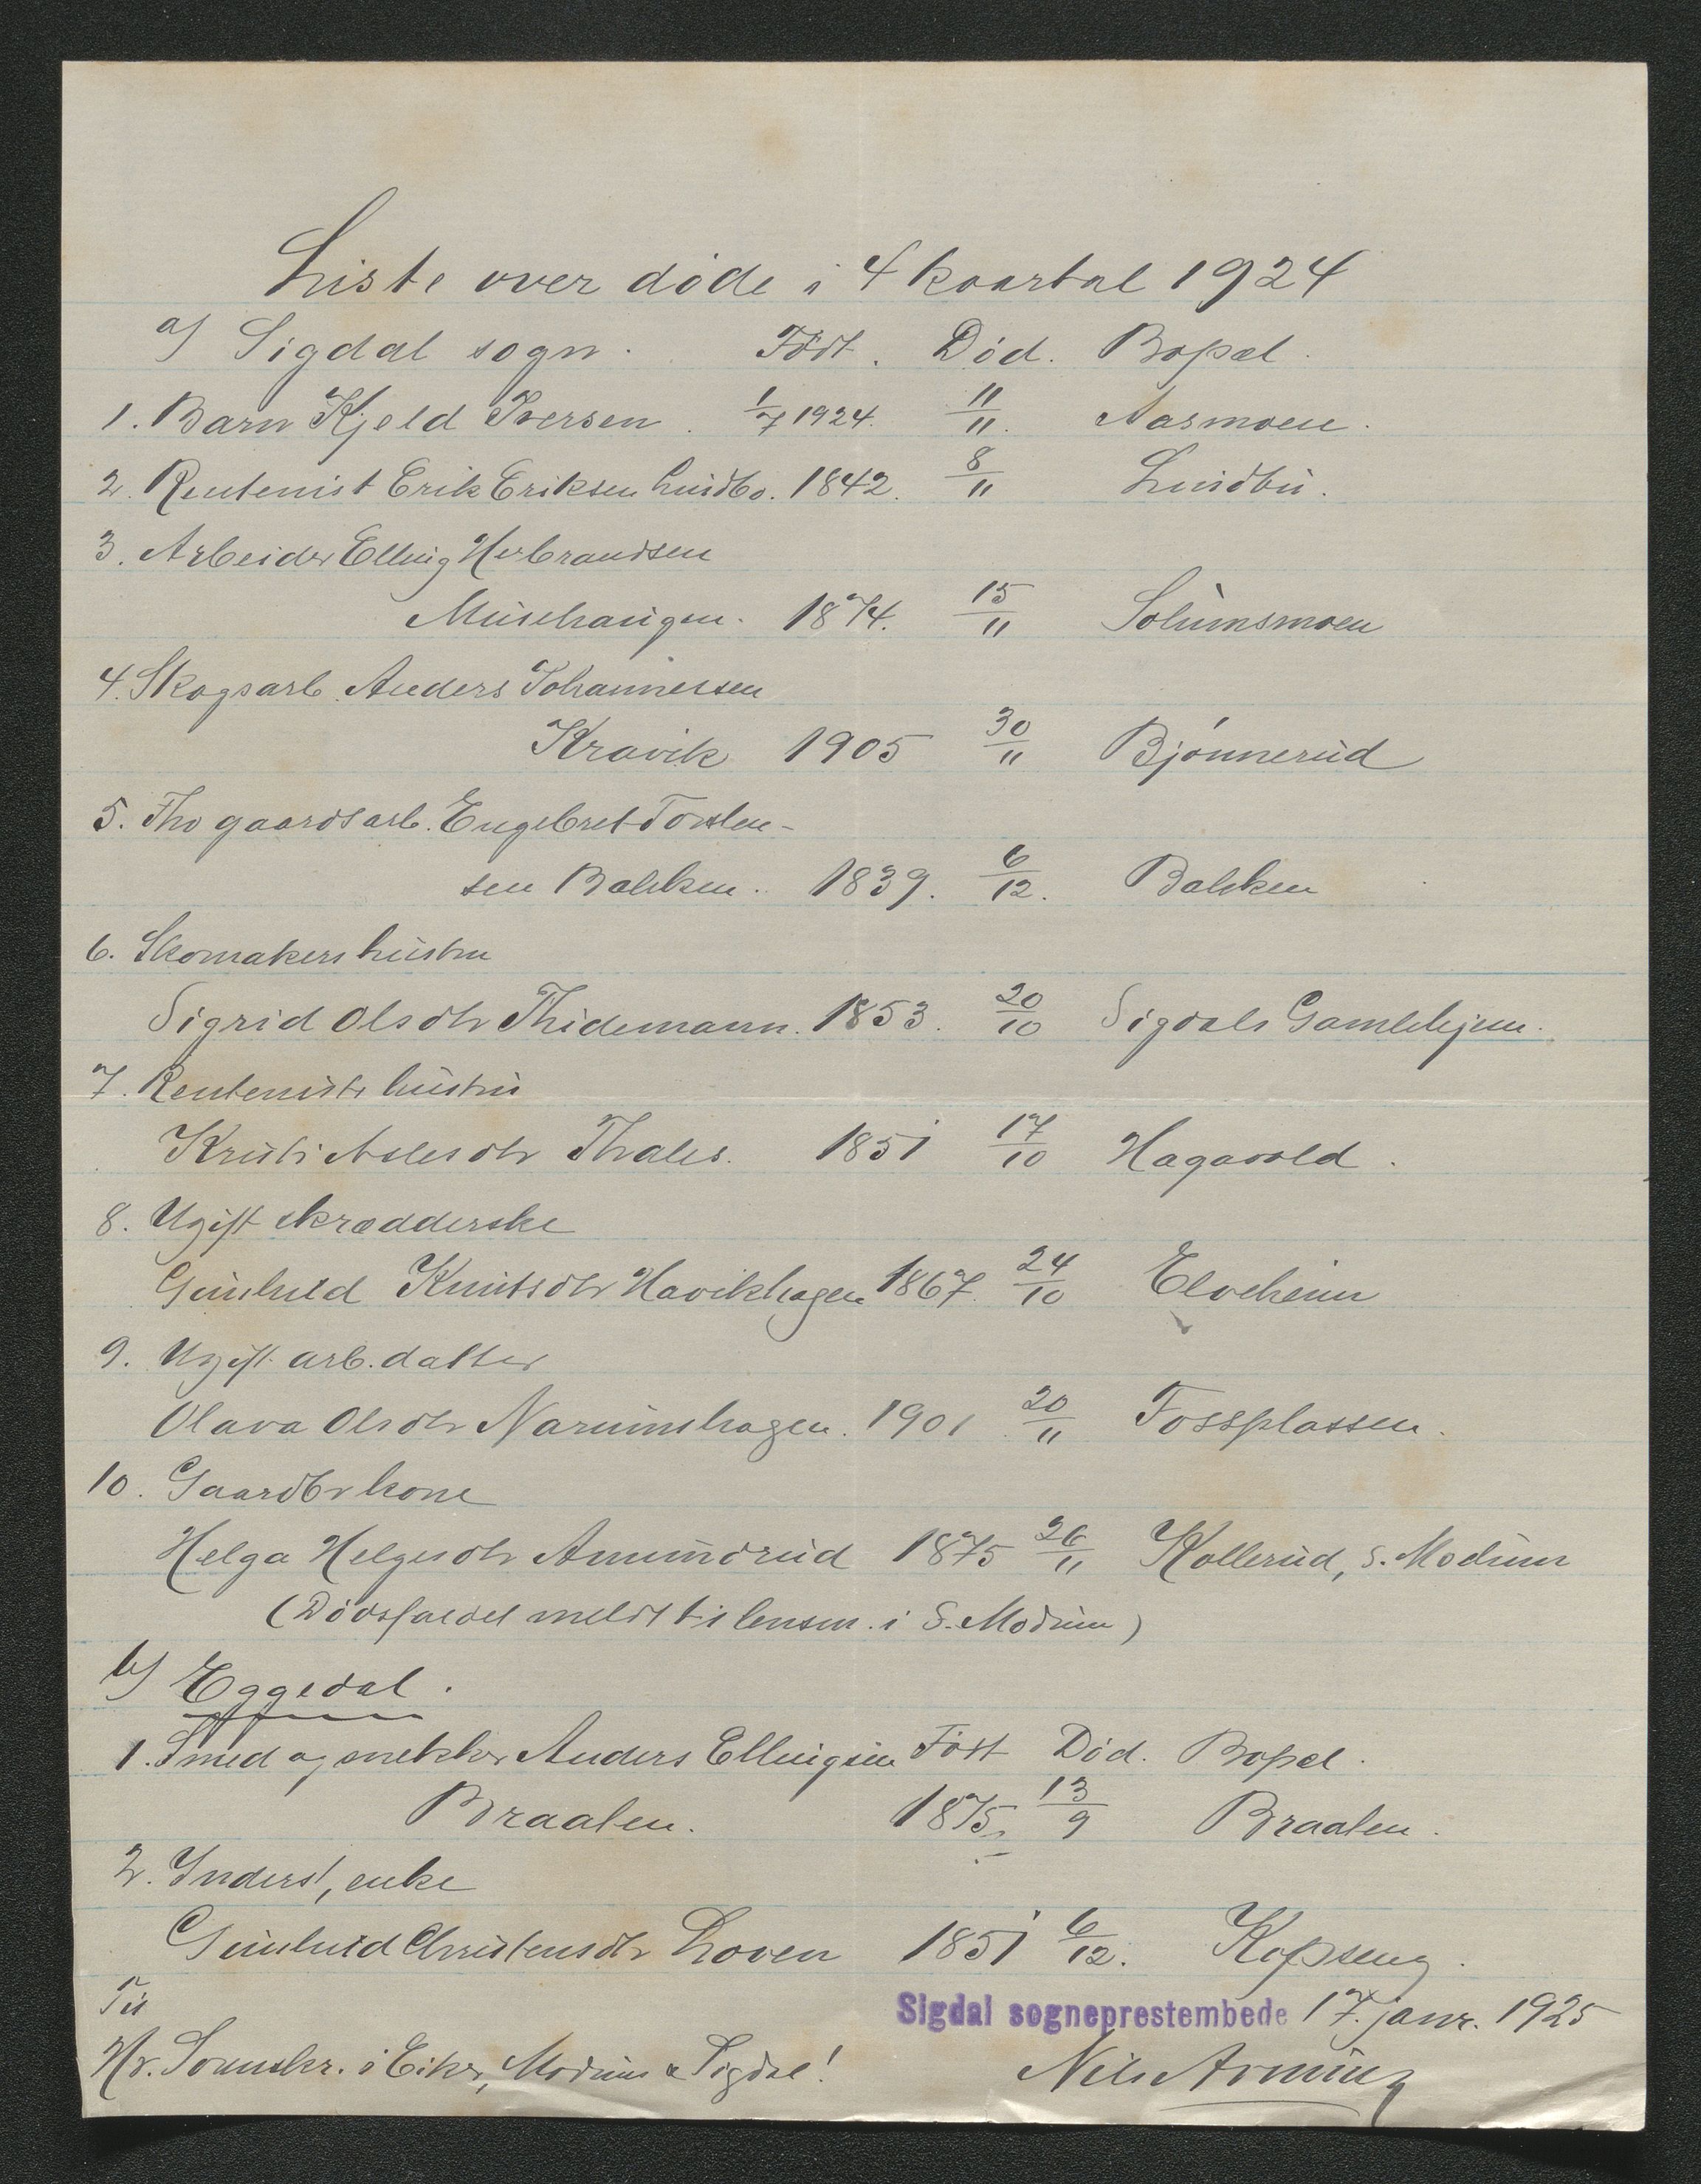 Liste over døde i 4 kvartal 1924
a) Sigdal sogn. Født. Død. Bopæl.
1. Barn Kjeld Iversen. 1/7 1924. 11/11. Aasmoen.
2. Rentenist Erik Eriksen Lindbo. 1842. 8/11 Lindbü.
3. Arbeider Elling Herbrandsen
Müsehaugen. 1874. 15/11 Solümsmoen
4. Skogsarb. Anders Johannessen
Kravik 1905 30/11 Bjönnerüd
5. Fhv gaardsarb. Engebret Torsten-
sen Bakken. 1839. 6/12. Bakken
6. Skomakers hüstru
Sigrid Olsdtr Thidemann. 1853. 20/10 Sigdals Gamlehjem.
7. Rentenists hüstrü
Kristi Aslesdtr Thrales. 1851 17/10 Hagavold.
8. Ugift skrædderske
Günhild Knutsdtr Havikhagen 1867. 24/10 Elveheim
9. Ugift arb. datter
Olava Olsdtr Narumshagen. 1901 20/11 Fossplassen.
10. Gaardbr kone
Helga Helgesdtr Amundrüd 1875 26/11 Kollerüd, S. Modum
(Dødsfaldet meldt til lensm. i S. Modum)
b) Eggedal.
1. Smed og snekker Anders Ellingsen Født Død. Bopæl.
Braaten. 1875. 13/9 Braaten.
2. Inderst, enke
Günhild Christensdtr Loven 1851 6/12. Kopseng.
Til Sigdal sogneprestembede 17. janr. 1925
Hr. Sorenskr. i Eiker, Modum & Sigdal! Nils